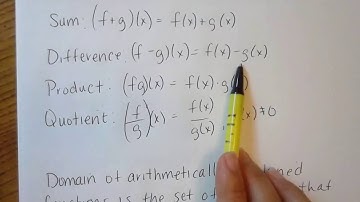 Sum: (f+g)(x) = f(x)+g(x)
Difference: (f-g)(x) = f(x)-g(x)
Product: (fg)(x) = f(x)·g
Quotient: (f/g)(x) = f(x)/g(x), (x)≠0
Domain of arithmetically
functions is the set of that